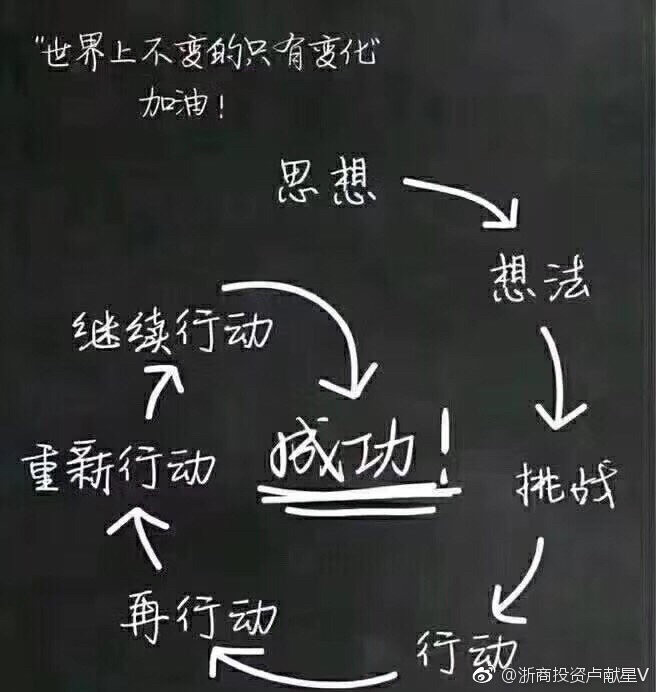 "世界上不变的只有变化"
加油！
思想
想法
挑战
行动
再行动
重新行动
继续行动
成功！
@浙商投资卢献星V